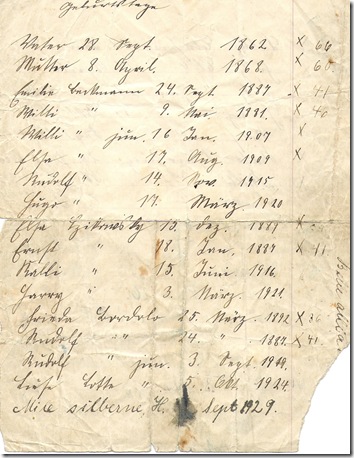 Geburtstage
Vater 28. Sept. 1862 x 66
Mutter 8. April. 1868. x 60
Emilie Beckmann 24. Sept 1887 x 41
Willi " 9. Mai 1881. x
Willi " jun. 16 Jan. 1907 x
Elsa " 17. Aug. 1909 x
Rudolf " 14. Nov. 1915
Hugo " 17. März. 1920
Elsa 13. Dez. 1889 x
Ernst " 18. Jan. 1887 x 41
Kalli " 15. Juni 1916.
Harry " 3. März. 1921
Frieda Bordolo 25. März. 1892 x 36
Rudolf " 24. " 1887 x 41
Rudolf " jun. 3. Sept. 1919.
Liese Lotte " 5. Okt. 1924.
silberne H. Sept 1929.